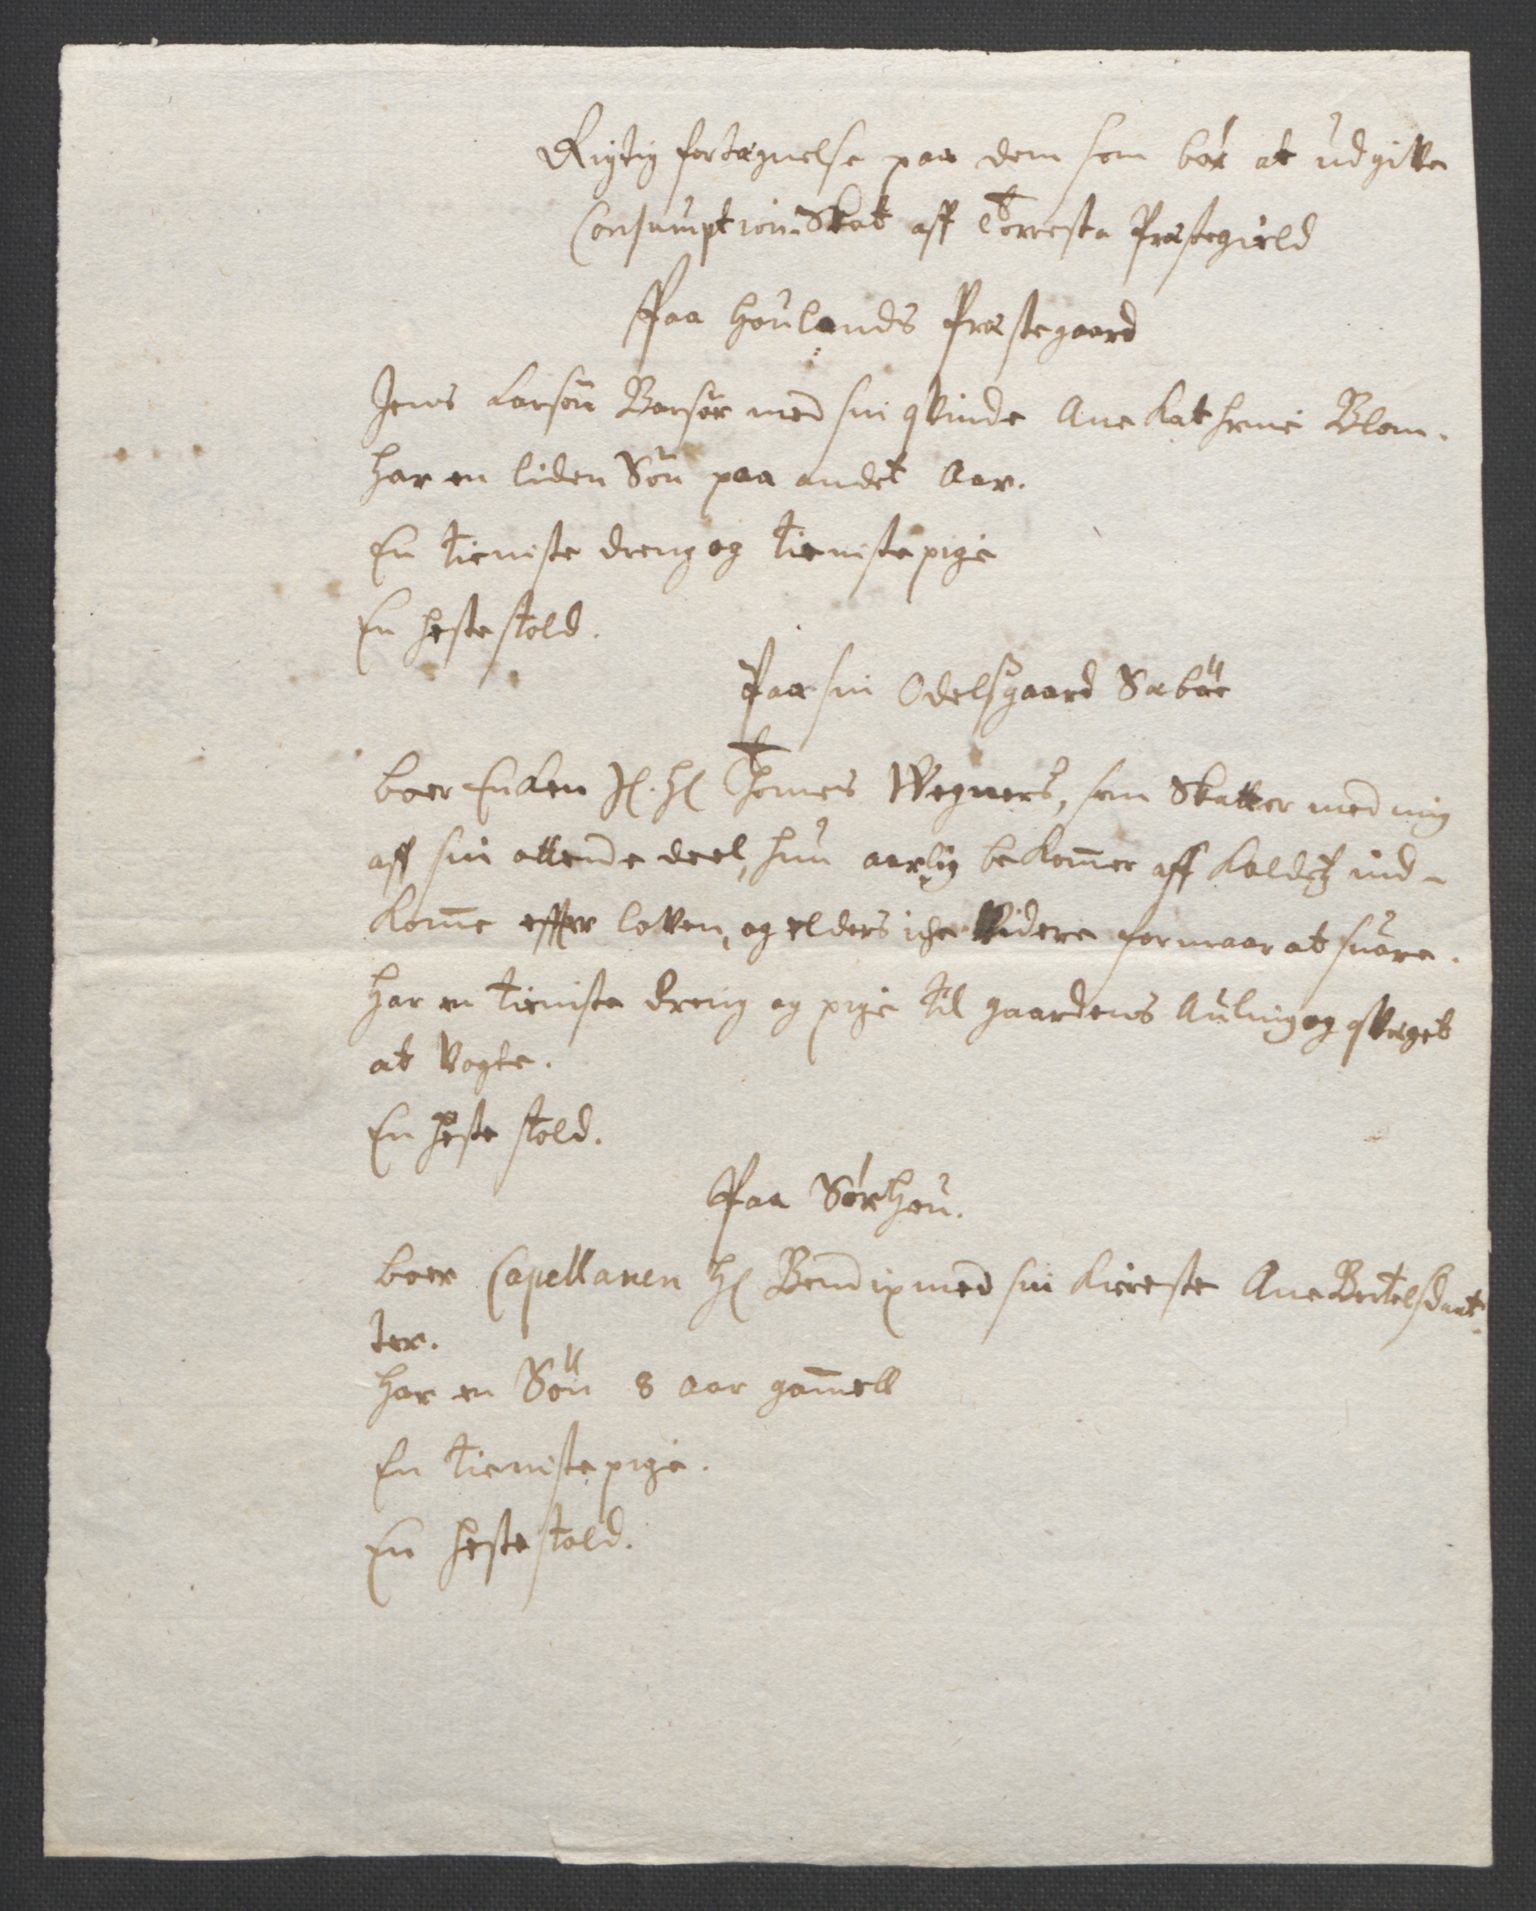 Rigtig fortegnelse paa dem som bør at udgifve
Consumption-Skat aff Torresta Præstegield
Paa Houlands Præstegaard
Jens Larsøn Barsøe med sin qvinde Ane Kathrine Blom.
har en liden Søn paa andet Aar.
En tieniste dreng og tieniste pige
En heste stold.
Paa sin Odelsgaard Sæbøe
boer Encken Sl. Hl Thomes Wegners, som Skatter med mig
aff sin ottende deel, hun aarlig bekom̄er aff Kaldetz ind-
kom̄e effter loven, og elders iche videre formaar at suare.
har en tieniste dreng og pige til gaardens Auling og qvæget
at vogte.
En heste stold.
Paa Sørhou.
boer Capellanen Hl Bendix med sin kiereste Ane Bertelsdaat-
ter.
har en Søn 8 aar gam̄ell
En tieniste pige.
En heste stold.